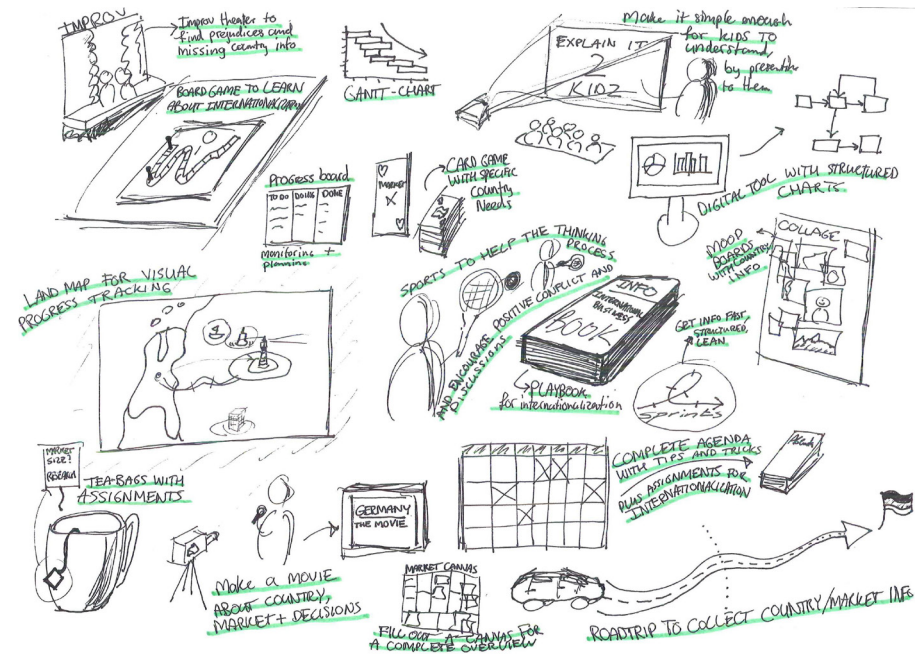 IMPROV
Improv theater to
find prejudices and
missing country info
BOARD GAME TO LEARN
ABOUT INTERNATIONALIZATION
GANTT-CHART
Make it simple enough
for KIDS TO
understand,
by presenting
to them
EXPLAIN IT
2
KIDZ
DIGITAL TOOL WITH STRUCTURED
CHARTS
Progress board
TO DO DOING DONE
monitoring +
planning
MARKET
X
CARD GAME
WITH SPECIFIC
Country
Needs
LAND MAP FOR VISUAL
PROGRESS TRACKING
SPORTS TO HELP THE THINKING
PROCESS
AND ENCOURAGE POSITIVE CONFLICT AND
DISCUSSIONS
INFO
INTERNATIONAL
BUSINESS
BOOK
PLAYBOOK
for internationalization
GET INFO FAST,
STRUCTURED,
LEAN
Sprints
MOOD
BOARDS
WITH COUNTRY
INFO
COLLAGE
MARKET
SIZE?
RESEARCH
TEA-BAGS WITH
ASSIGNMENTS
GERMANY
THE MOVIE
Make a MOVIE
ABOUT COUNTRY,
MARKET + DECISIONS
MARKET CANVAS
FILL OUT A CANVAS FOR
A COMPLETE OVERVIEW
COMPLETE AGENDA
WITH TIPS AND TRICKS
PLUS ASSIGNMENTS FOR
INTERNATIONALIZATION
ROADTRIP TO COLLECT COUNTRY/MARKET INFO